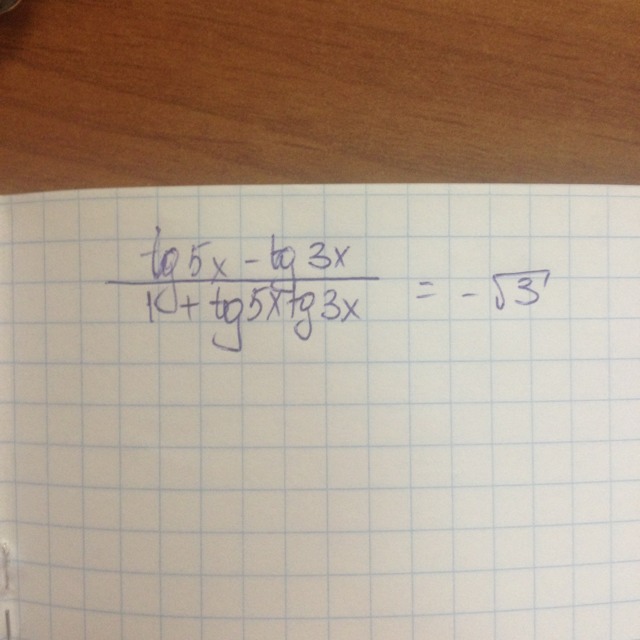 tg 5x - tg 3x
1 + tg 5x tg 3x = - √3